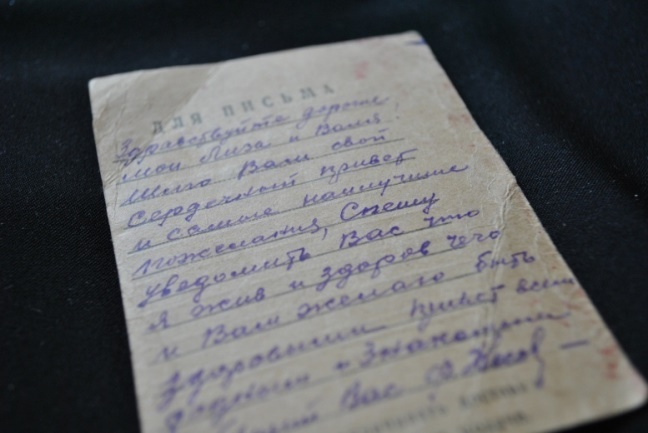 ДЛЯ ПИСЬМА
Здравствуйте дорогие
мои Лиза и Валя
Шлю Вам свой
сердечный привет
и самые наилучшие
пожелания, Спешу
уведомить Вас что
я жив и здоров чего
и Вам желаю быть
здоровыми привет всем
родным и знакомым
Вас